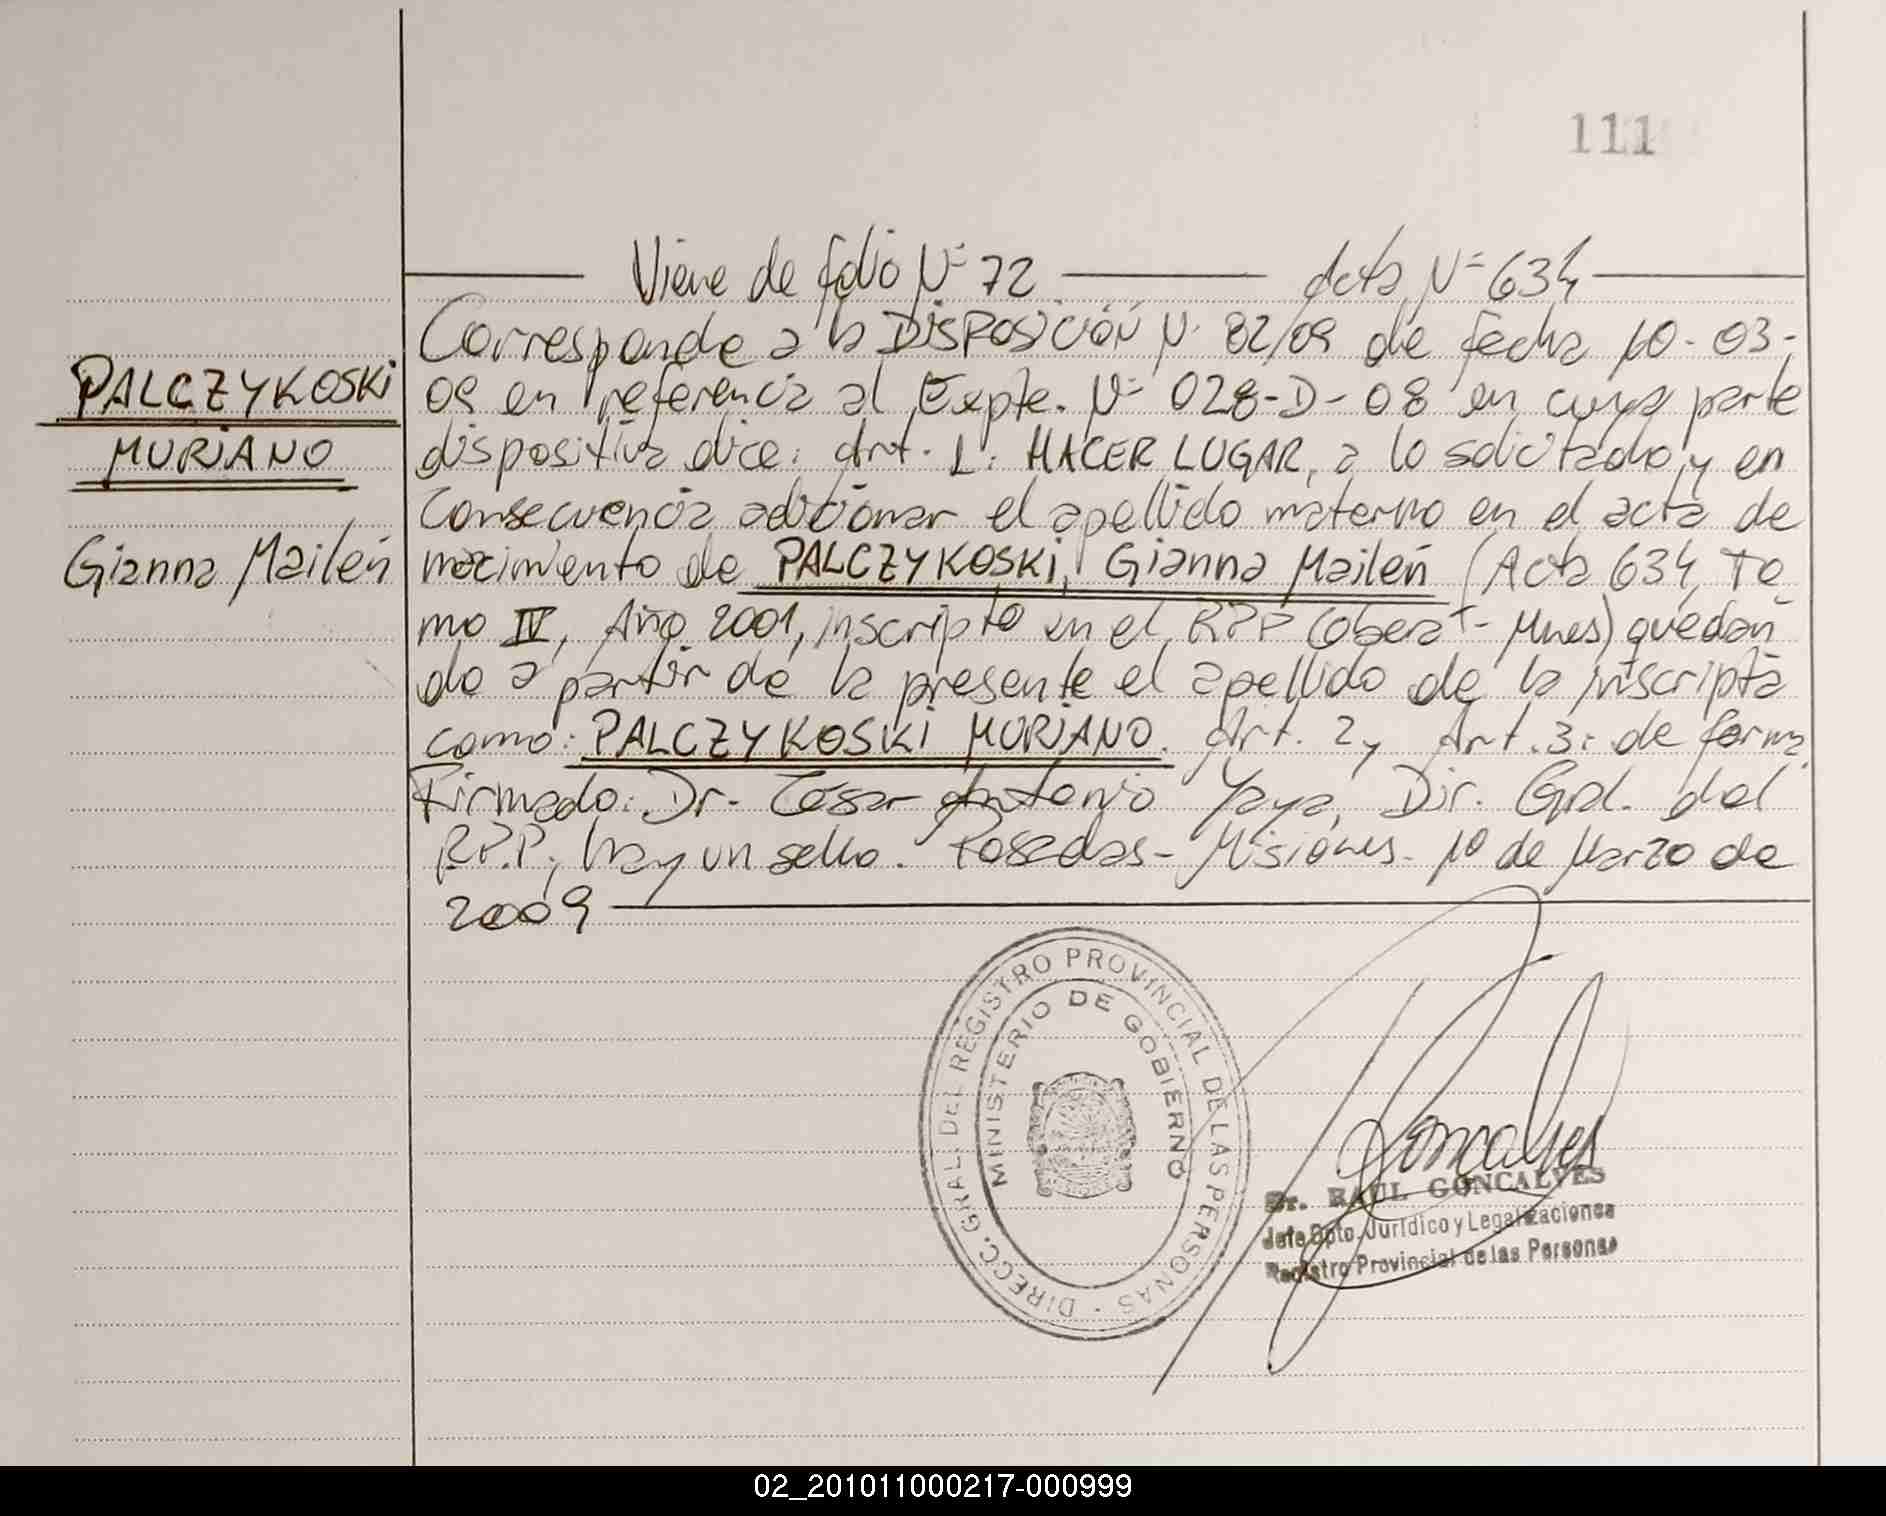 111
Viene de folio Nº 72 Acta Nº 634
Corresponde a la DISPOSICIÓN Nº 82/09 de fecha 10-03-
PALCZYKOSKI
09 en referencia al Expte. Nº 028-D-08 en cuya parte
MURIANO
dispositiva dice: Art. 1: HACER LUGAR, a lo solicitado, y en
consecuencia adicionar el apellido materno en el acta de
Gianna Mailén
nacimiento de PALCZYKOSKI, Gianna Mailén (Acta 634, To
mo IV, Año 2001, inscripto en el RPP Oberá - Mnes) quedan
do a partir de la presente el apellido de la inscripta
como: PALCZYKOSKI MURIANO. Art. 2, Art. 3: de forma
Firmado: Dr. Cesar Antonio Yaya, Dir. Gral. del
R.P.P., hay un sello. Posadas - Misiones - 10 de Marzo de
2009
DIRECC. GRAL. DEL REGISTRO PROVINCIAL DE LAS PERSONAS
MINISTERIO DE GOBIERNO
Goncalves
Dr. RAUL GONCALVES
Jefe Dpto. Jurídico y Legalizaciones
Registro Provincial de las Personas
02_201011000217-000999